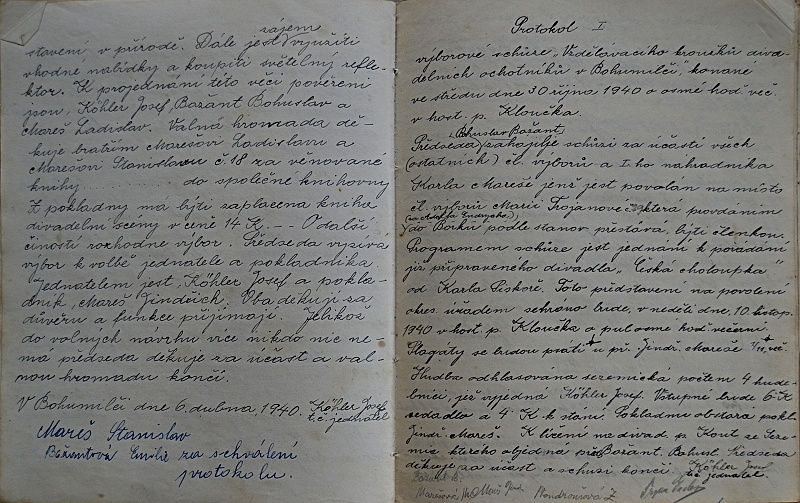 zájem
stavení v přírodě. Dále jest využíti
vhodné nalídky a koupiti světelný refle-
ktor. K projednání této věci pověřeni
jsou, Köhler Josef Bažant Bohuslav a
Mareš Ladislav. Valná hromada dě-
kuje bratřím Marešovi Ladislavu a
Marešovi Stanislavu č 18 za věnované
knihy .......... do společné knihovny
Z pokladny má býti zaplacena kniha
divadelní scény v ceně 14 K.-- O další
činosti rozhodne výbor. Předseda vyzívá
výbor k volbě jednatele a pokladníka
Jednatelem jest, Köhler Josef a pokla-
dník, Mareš Jindřich. Oba děkují za
důvěru a funkce přijímají. Jelikož
do volných návrhů více nikdo nic ne-
má předseda děkuje za účast a val-
nou hromadu končí.
V Bohumilči dne 6. dubna, 1940. Köhler Josef
t. č. jednatel
Mareš Stanislav
Bažantová Emilie za schválení
protokolu.
Protokol I
výborové schůze „Vzdělávacího kroužku diva-
delních ochotníků v Bohumilči, konané
ve středu dne 30 října 1940 o osmé hod več.
v host. p. Kloučka.
(Bohuslav Bažant)
Předseda zahajuje schůzi za účasti všech
(ostatních) čl. výborů a I. ho náhradníka
Karla Mareše jenž jest povolán na místo
čl. výborů Marii Trojanové která provdáním
do Borku podle stanov přestává, býti členkou.
Programem schůze jest jednání k pořádání
již připraveného divadla „Česká chaloupka"
od Karla Piskoře. Toto představení na povolení
okres. úřadem sehráno bude, v neděli dne, 10. listop.
1940 v host. p. Kloučka o půl osmé hod večerní.
Plagáty se budou psáti u př. Jindř. Mareše
Hudba odhlasována sezemická počtem 4 hude-
bníci, jež vyjedná Köhler Josef. Vstupné bude 6 K
sedadlo a 4 K k stání. Pokladnu obstará pokl.
Jindř. Mareš. K líčení na divad. p. Kout ze Seze-
mic kterého objedná Bažant. Bohusl. Předseda
děkuje za účast a schůzi končí. Köhler Josef
t. č. jednatel
Bažant B.
Marešová M. Mareš Jind.